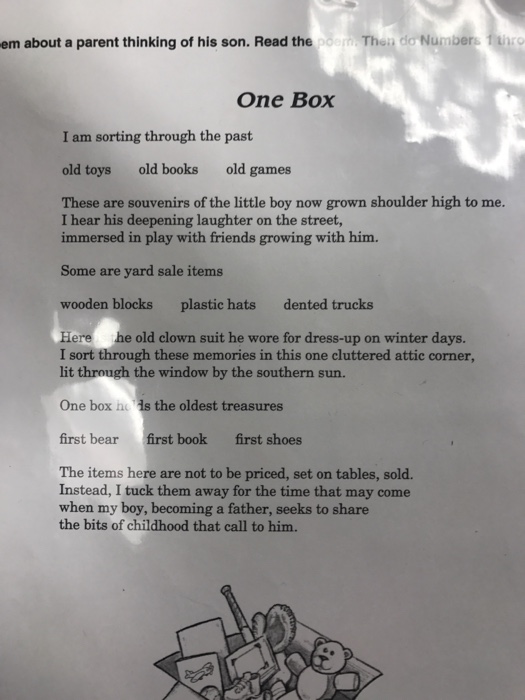 em about a parent thinking of his son. Read the poem. Then do Numbers 1 thro
One Box
I am sorting through the past
old toys old books old games
These are souvenirs of the little boy now grown shoulder high to me.
I hear his deepening laughter on the street,
immersed in play with friends growing with him.
Some are yard sale items
wooden blocks plastic hats dented trucks
Here the old clown suit he wore for dress-up on winter days.
I sort through these memories in this one cluttered attic corner,
lit through the window by the southern sun.
One box holds the oldest treasures
first bear first book first shoes
The items here are not to be priced, set on tables, sold.
Instead, I tuck them away for the time that may come
when my boy, becoming a father, seeks to share
the bits of childhood that call to him.